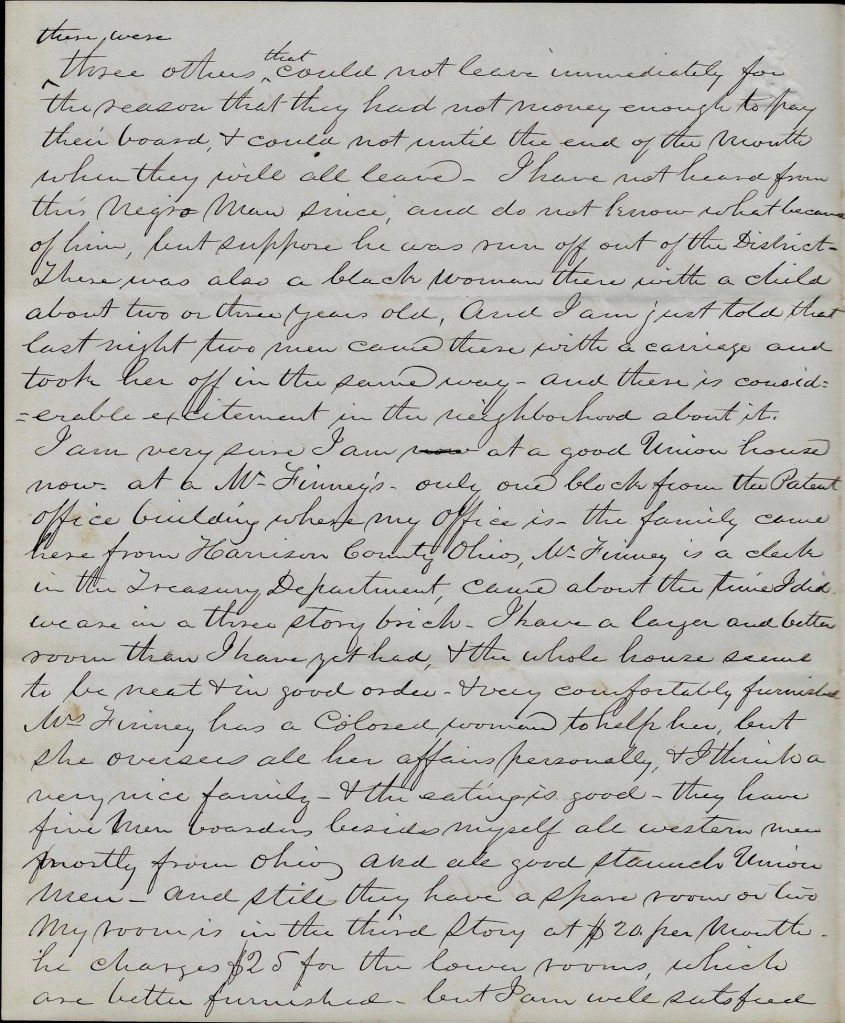 there were
three others that could not leave immediately for
the reason that they had not money enough to pay
their board, & could not until the end of the Month
when they will all leave - I have not heard from
this Negro Man since, and do not know what became
of him, but suppose he was run off out of the District -
There was also a black woman there with a child
about two or three years old, And I am just told that
last night two men came there with a carriage and
took her off in the same way - and there is consid=
=erable excitement in the neighborhood about it.
I am very sure I am now at a good Union house
now - at a Mr Finney's - only one block from the Patent
office building where my office is - the family came
here from Harrison County Ohio, Mr Finney is a clerk
in the Treasury Department, came about the time I did.
we are in a three story brick - I have a larger and better
room than I have yet had, & the whole house seems
to be neat & in good order - & very comfortably furnished
Mrs Finney has a Colored woman to help her, but
she oversees all her affairs personally, & I think a
very nice family - & the eating is good - they have
five Men boarders besides myself all western men
mostly from Ohio and all good staunch Union
Men - and still they have a spare room or two
My room is in the third Story at $20 per Month -
he charges $25 for the lower rooms, which
are better furnished - but I am well satisfied